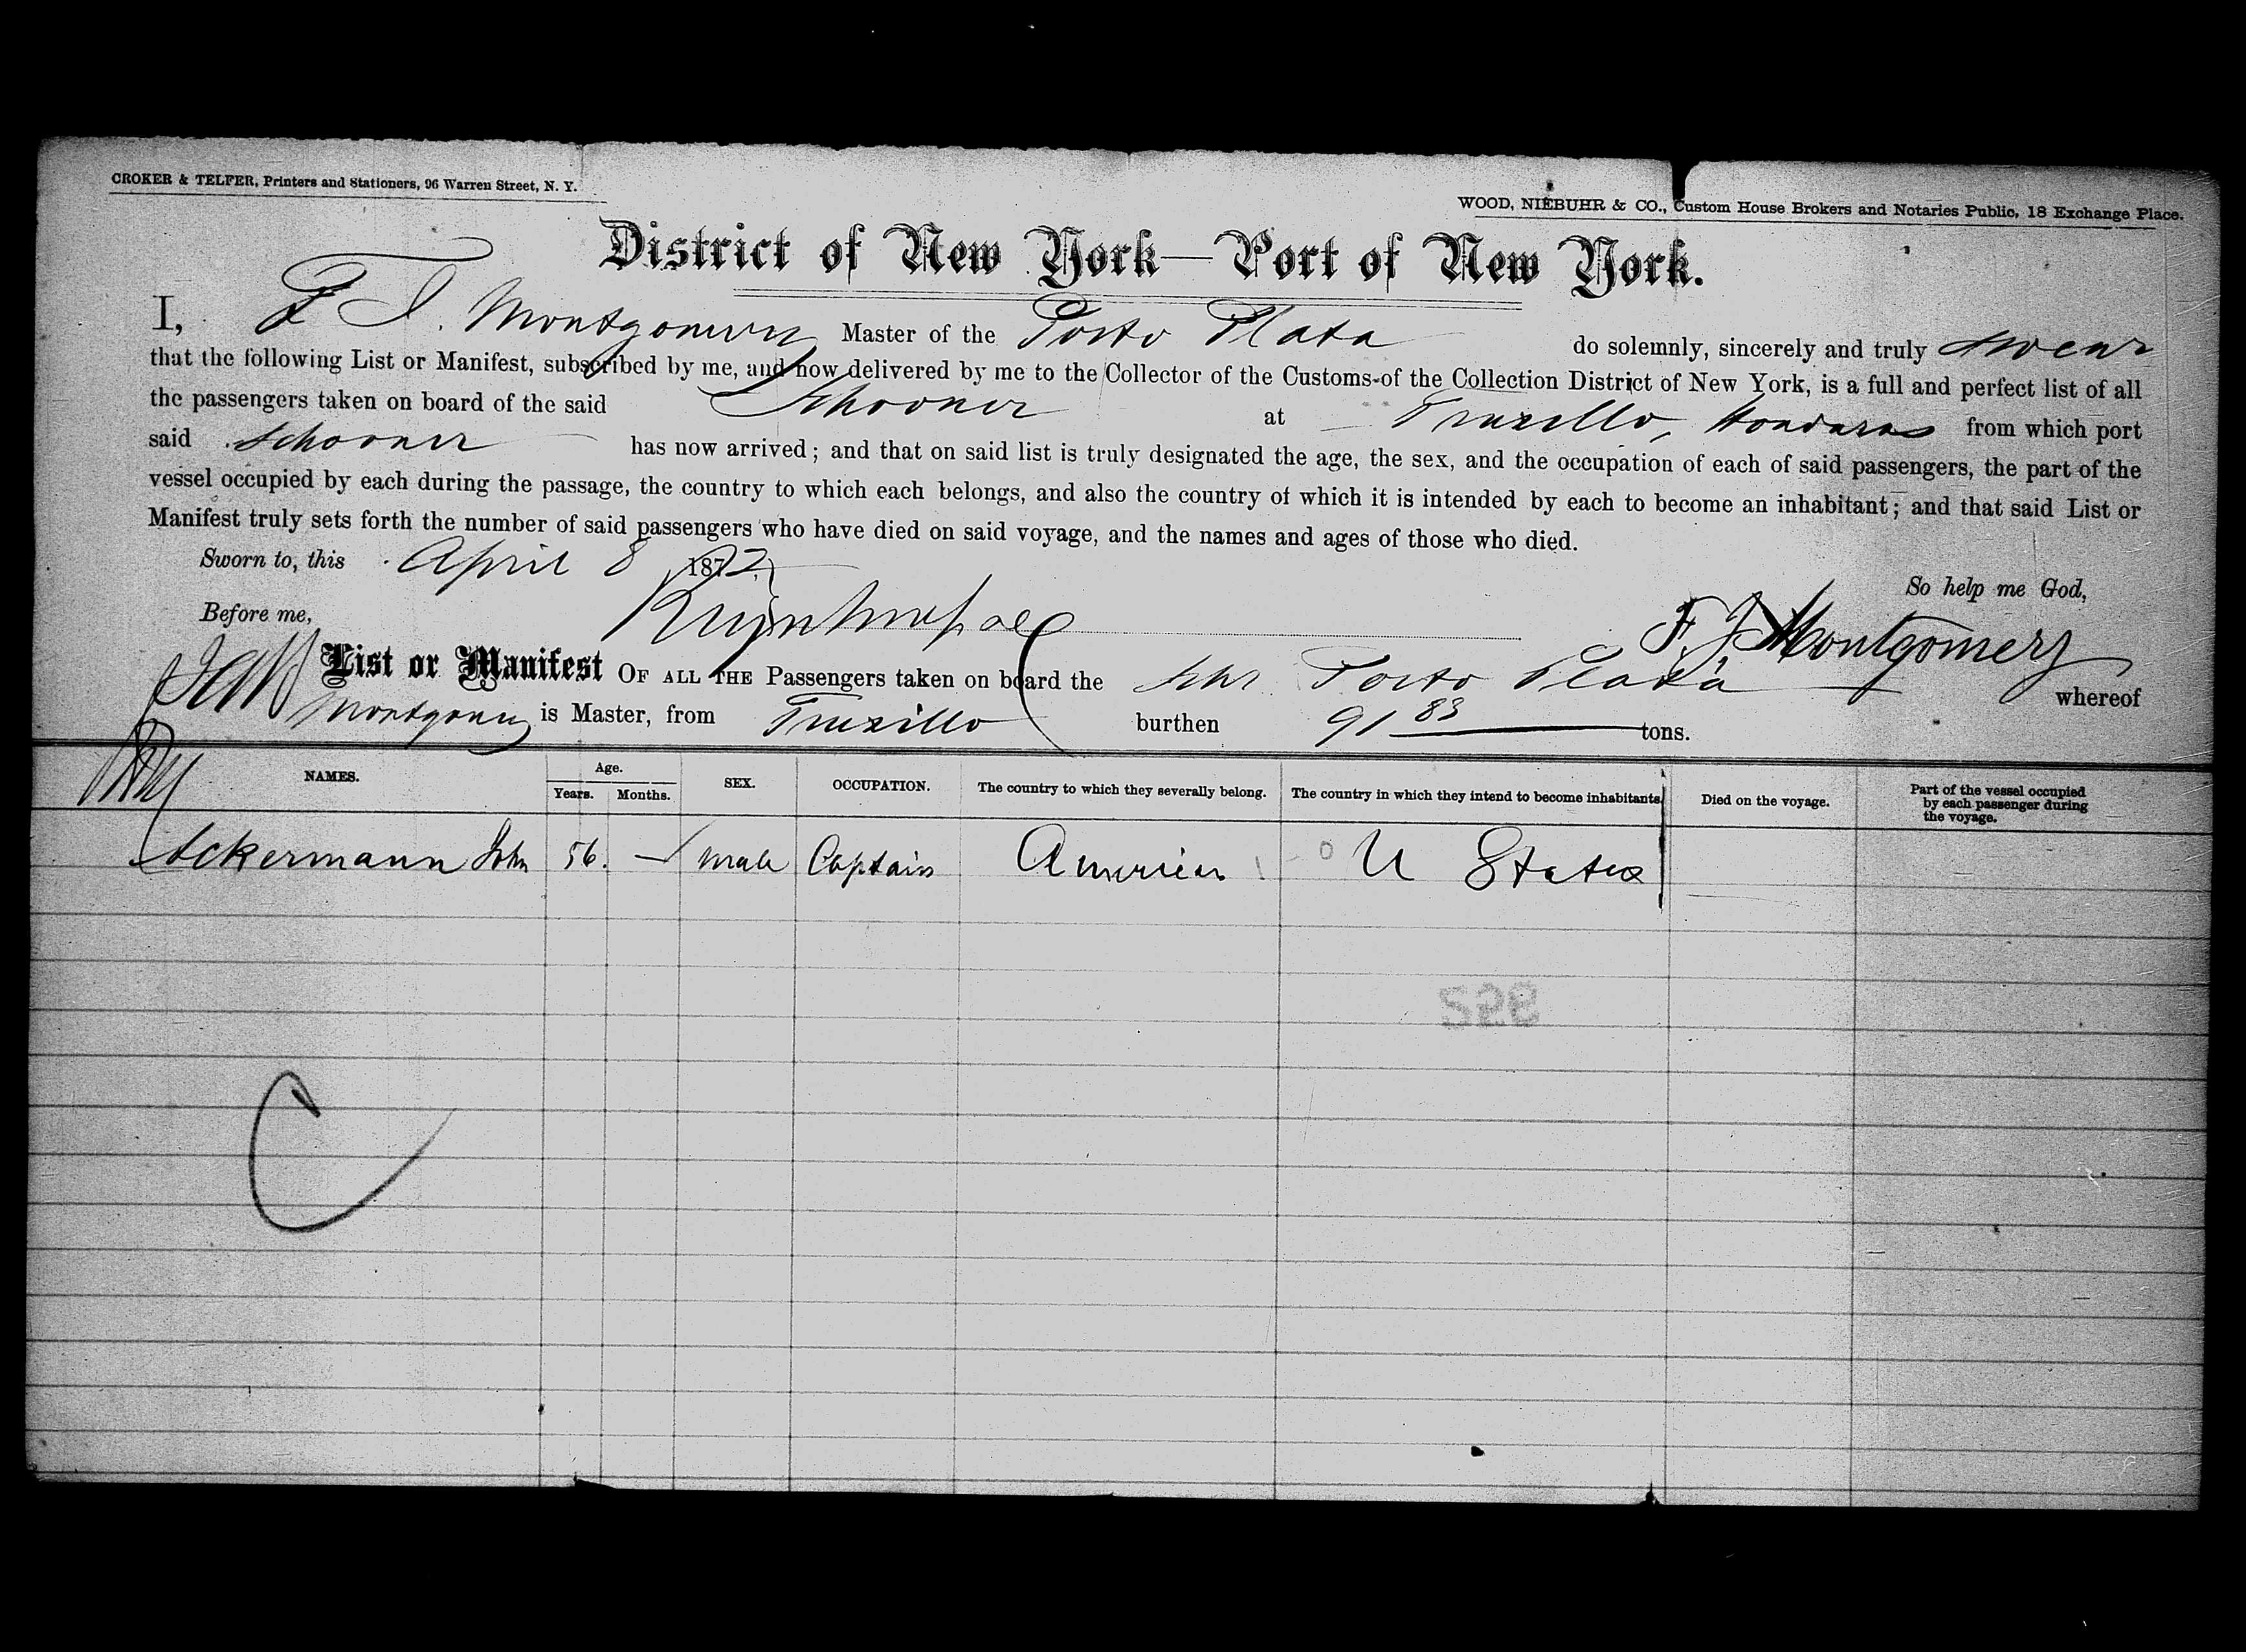 CROKER & TELFER, Printers and Stationers, 96 Warren Street, N. Y.
WOOD, NIEBUHR & CO., Custom House Brokers and Notaries Public, 18 Exchange Place.
District of New York—Port of New York.
I, F J. Montgomery Master of the Porto Plata do solemnly, sincerely and truly swear
that the following List or Manifest, subscribed by me, and now delivered by me to the Collector of the Customs of the Collection District of New York, is a full and perfect list of all
the passengers taken on board of the said Schooner at Truxillo, Honduras from which port
said Schooner has now arrived; and that on said list is truly designated the age, the sex, and the occupation of each of said passengers, the part of the
vessel occupied by each during the passage, the country to which each belongs, and also the country of which it is intended by each to become an inhabitant; and that said List or
Manifest truly sets forth the number of said passengers who have died on said voyage, and the names and ages of those who died.
Sworn to, this April 8 1872,
So help me God,
Before me,
F J Montgomery
List or Manifest OF ALL THE Passengers taken on board the Schr Porto Plata whereof
Montgomery is Master, from Truxillo burthen 91 83 tons.
NAMES. Age. Years. Months. SEX. OCCUPATION. The country to which they severally belong. The country in which they intend to become inhabitants. Died on the voyage. Part of the vessel occupied by each passenger during the voyage.
Ackermann John 56. — male Captain American U States
C